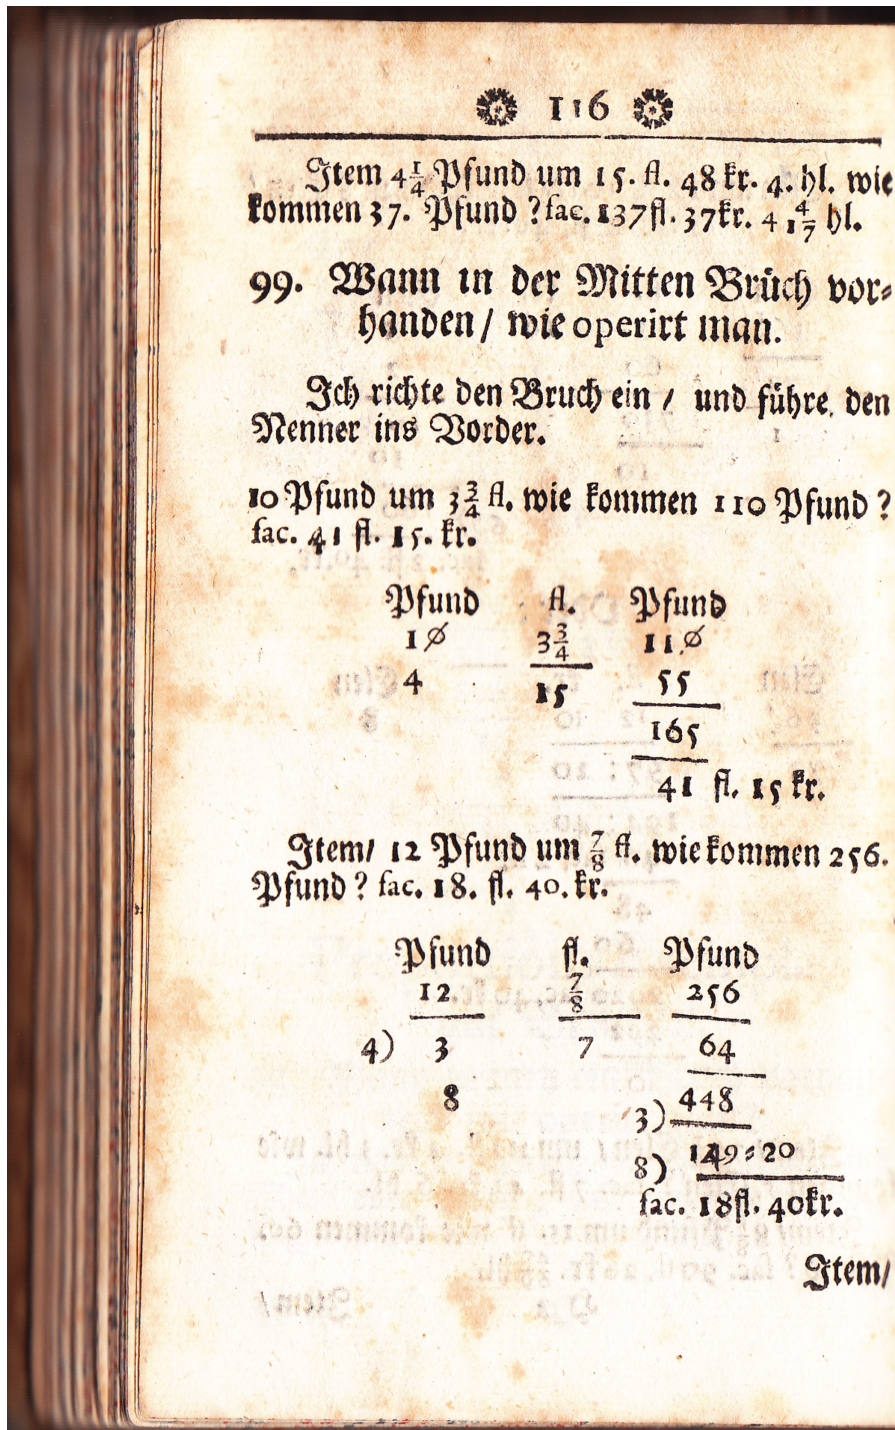 116
Item 4 1/4 Pfund um 15. fl. 48 kr. 4. hl. wie
kommen 37. Pfund ? fac. 137 fl. 37 kr. 4 1 4/7 hl.
99. Wann in der Mitten Brüch vor⸗
handen / wie operirt man.
Ich richte den Bruch ein / und führe den
Nenner ins Vorder.
10 Pfund um 3 3/4 fl. wie kommen 110 Pfund ?
fac. 41 fl. 15. kr.
Pfund fl. Pfund
10 3 3/4 11.0
4 15 55
165
41 fl. 15 kr.
Item / 12 Pfund um 7/8 fl. wie kommen 256.
Pfund ? fac. 18. fl. 40. kr.
Pfund fl. Pfund
12 7/8 256
4) 3 7 64
8 448
3)
8) 149⸗20
fac. 18 fl. 40 kr.
Item /